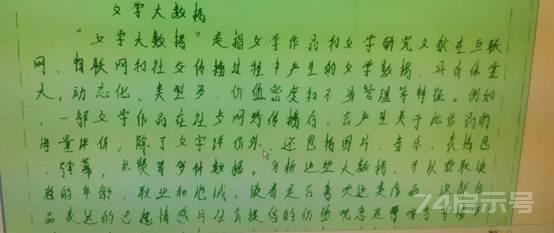 文学大数据
"文学大数据"是指文学作品和文学研究文献在互联
网、物联网和社交传播过程中产生的文学数据,具有体量
大,动态化、类型多、价值密度和不易管理等特征。例如
一部文学作品在社交网络传播后,会产生关于此作品的
海量评价,除了文字评价外,还包括图片、音乐、表情包
、弹幕,点赞等多种数据。分析这些大数据,可以获取读
者的年龄、职业和地域,读者是否喜欢这类作品,这部作
品表达的思想情感与社会提倡的价值观念是
74启示号